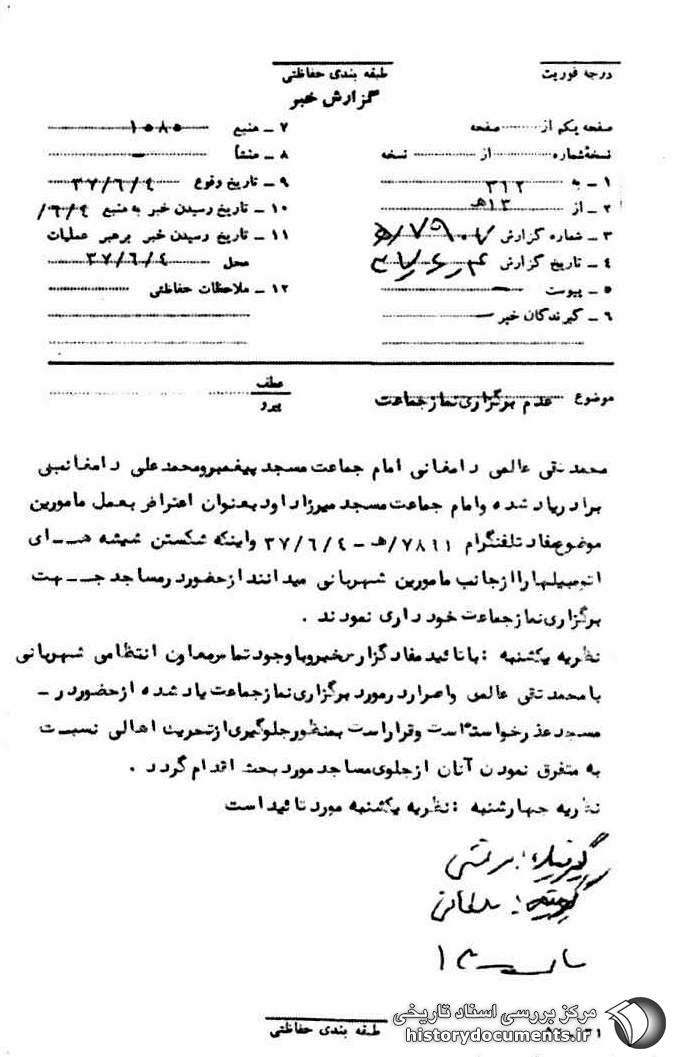 درجه فوریت
طبقه بندی حفاظتی
گزارش خبر
صفحه یکم از صفحه
نسخهٔ شماره از نسخه
۱ – به ۳۱۲
۲ – از ۱۳ هـ
۳ – شماره گزارش
۴ – تاریخ گزارش
۵ – پیوست –
۶ – گیرندگان خبر –
۷ – منبع ۱۰۸۵۰
۸ – منشأ –
۹ – تاریخ وقوع ۳۷/۶/۴
۱۰ – تاریخ رسیدن خبر به منبع ۶/۴/
۱۱ – تاریخ رسیدن خبر برهبر عملیات
محل ۳۷/۶/۴
۱۲ – ملاحظات حفاظتی
موضوع عدم برگزاری نماز جماعت
عطف
پیرو
محمد تقی عالمی دامغانی امام جماعت مسجد پیغمبر و محمد علی دامغانی
برادر یاد شده و امام جماعت مسجد میرزا داود بعنوان اعتراض بعمل مامورین
موضوع مفاد تلفنگرام ۷۸۱۱/هـ – ۳۷/۶/۴ و اینکه شکستن شیشه هـــای
اتومبیلها را از جانب مامورین شهربانی میدانند از حضور در مساجد جـــهت
برگزاری نماز جماعت خود داری نمودند .
نظریه یکشنبه : با تائید مفاد گزارش خبر و با وجود تماس معاون انتظامی شهربانی
با محمد تقی عالمی و اصرار در مورد برگزاری نماز جماعت یاد شده از حضور در –
مسجد عذر خواسته است و قرار است بمنظور جلوگیری از تحریک اهالی نسبت
به متفرق نمودن آنان از جلوی مساجد مورد بحث اقدام گردد .
نظریه چهارشنبه : نظریه یکشنبه مورد تائید است
گیرنده :
گوینده : سلطانی
طبقه بندی حفاظتی
مرکز بررسی اسناد تاریخی
historydocuments.ir